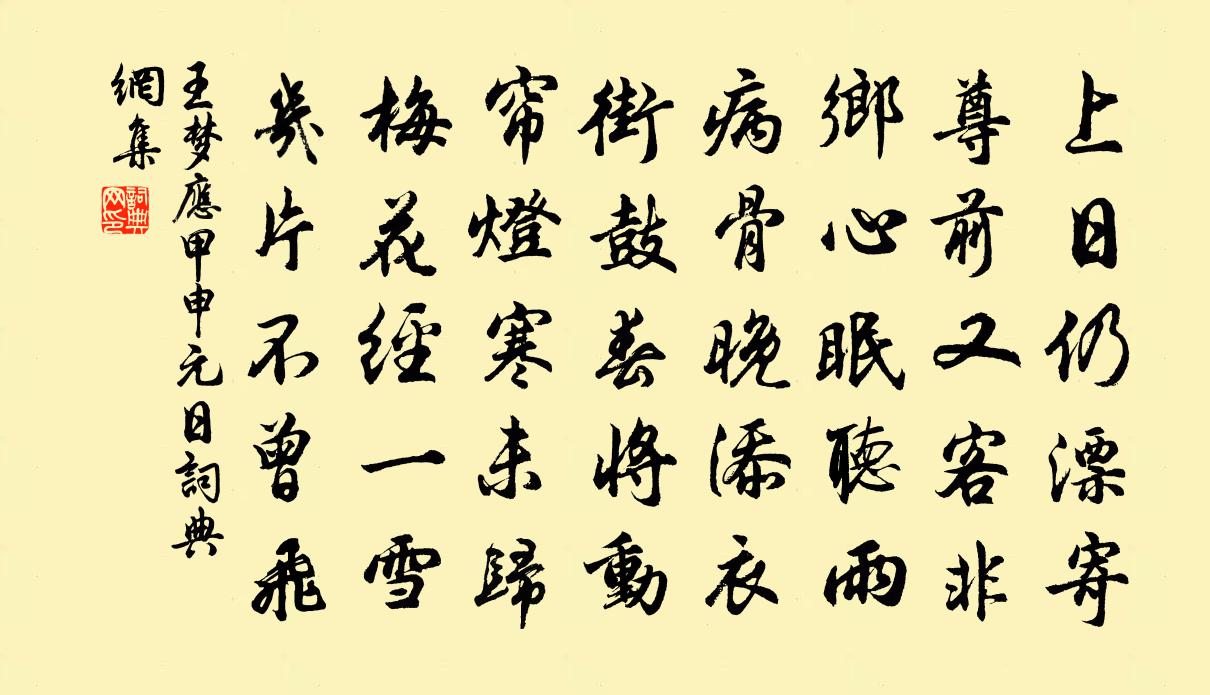 上日仍漂寄
尊前又客非
鄉心眠聽雨
病骨晚添衣
街鼓春將動
帘燈寒未歸
梅花經一雪
幾片不曾飛
王梦應甲申元日詞典
網集
詞典
网印